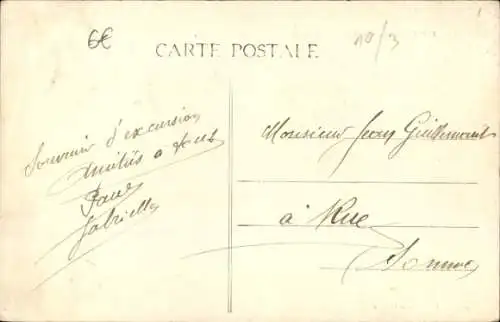 6€
10/3
CARTE POSTALE
Souvenir d'excursion
Amitiés a tous
Gabrielle
Monsieur Jean
à Rue
Somme